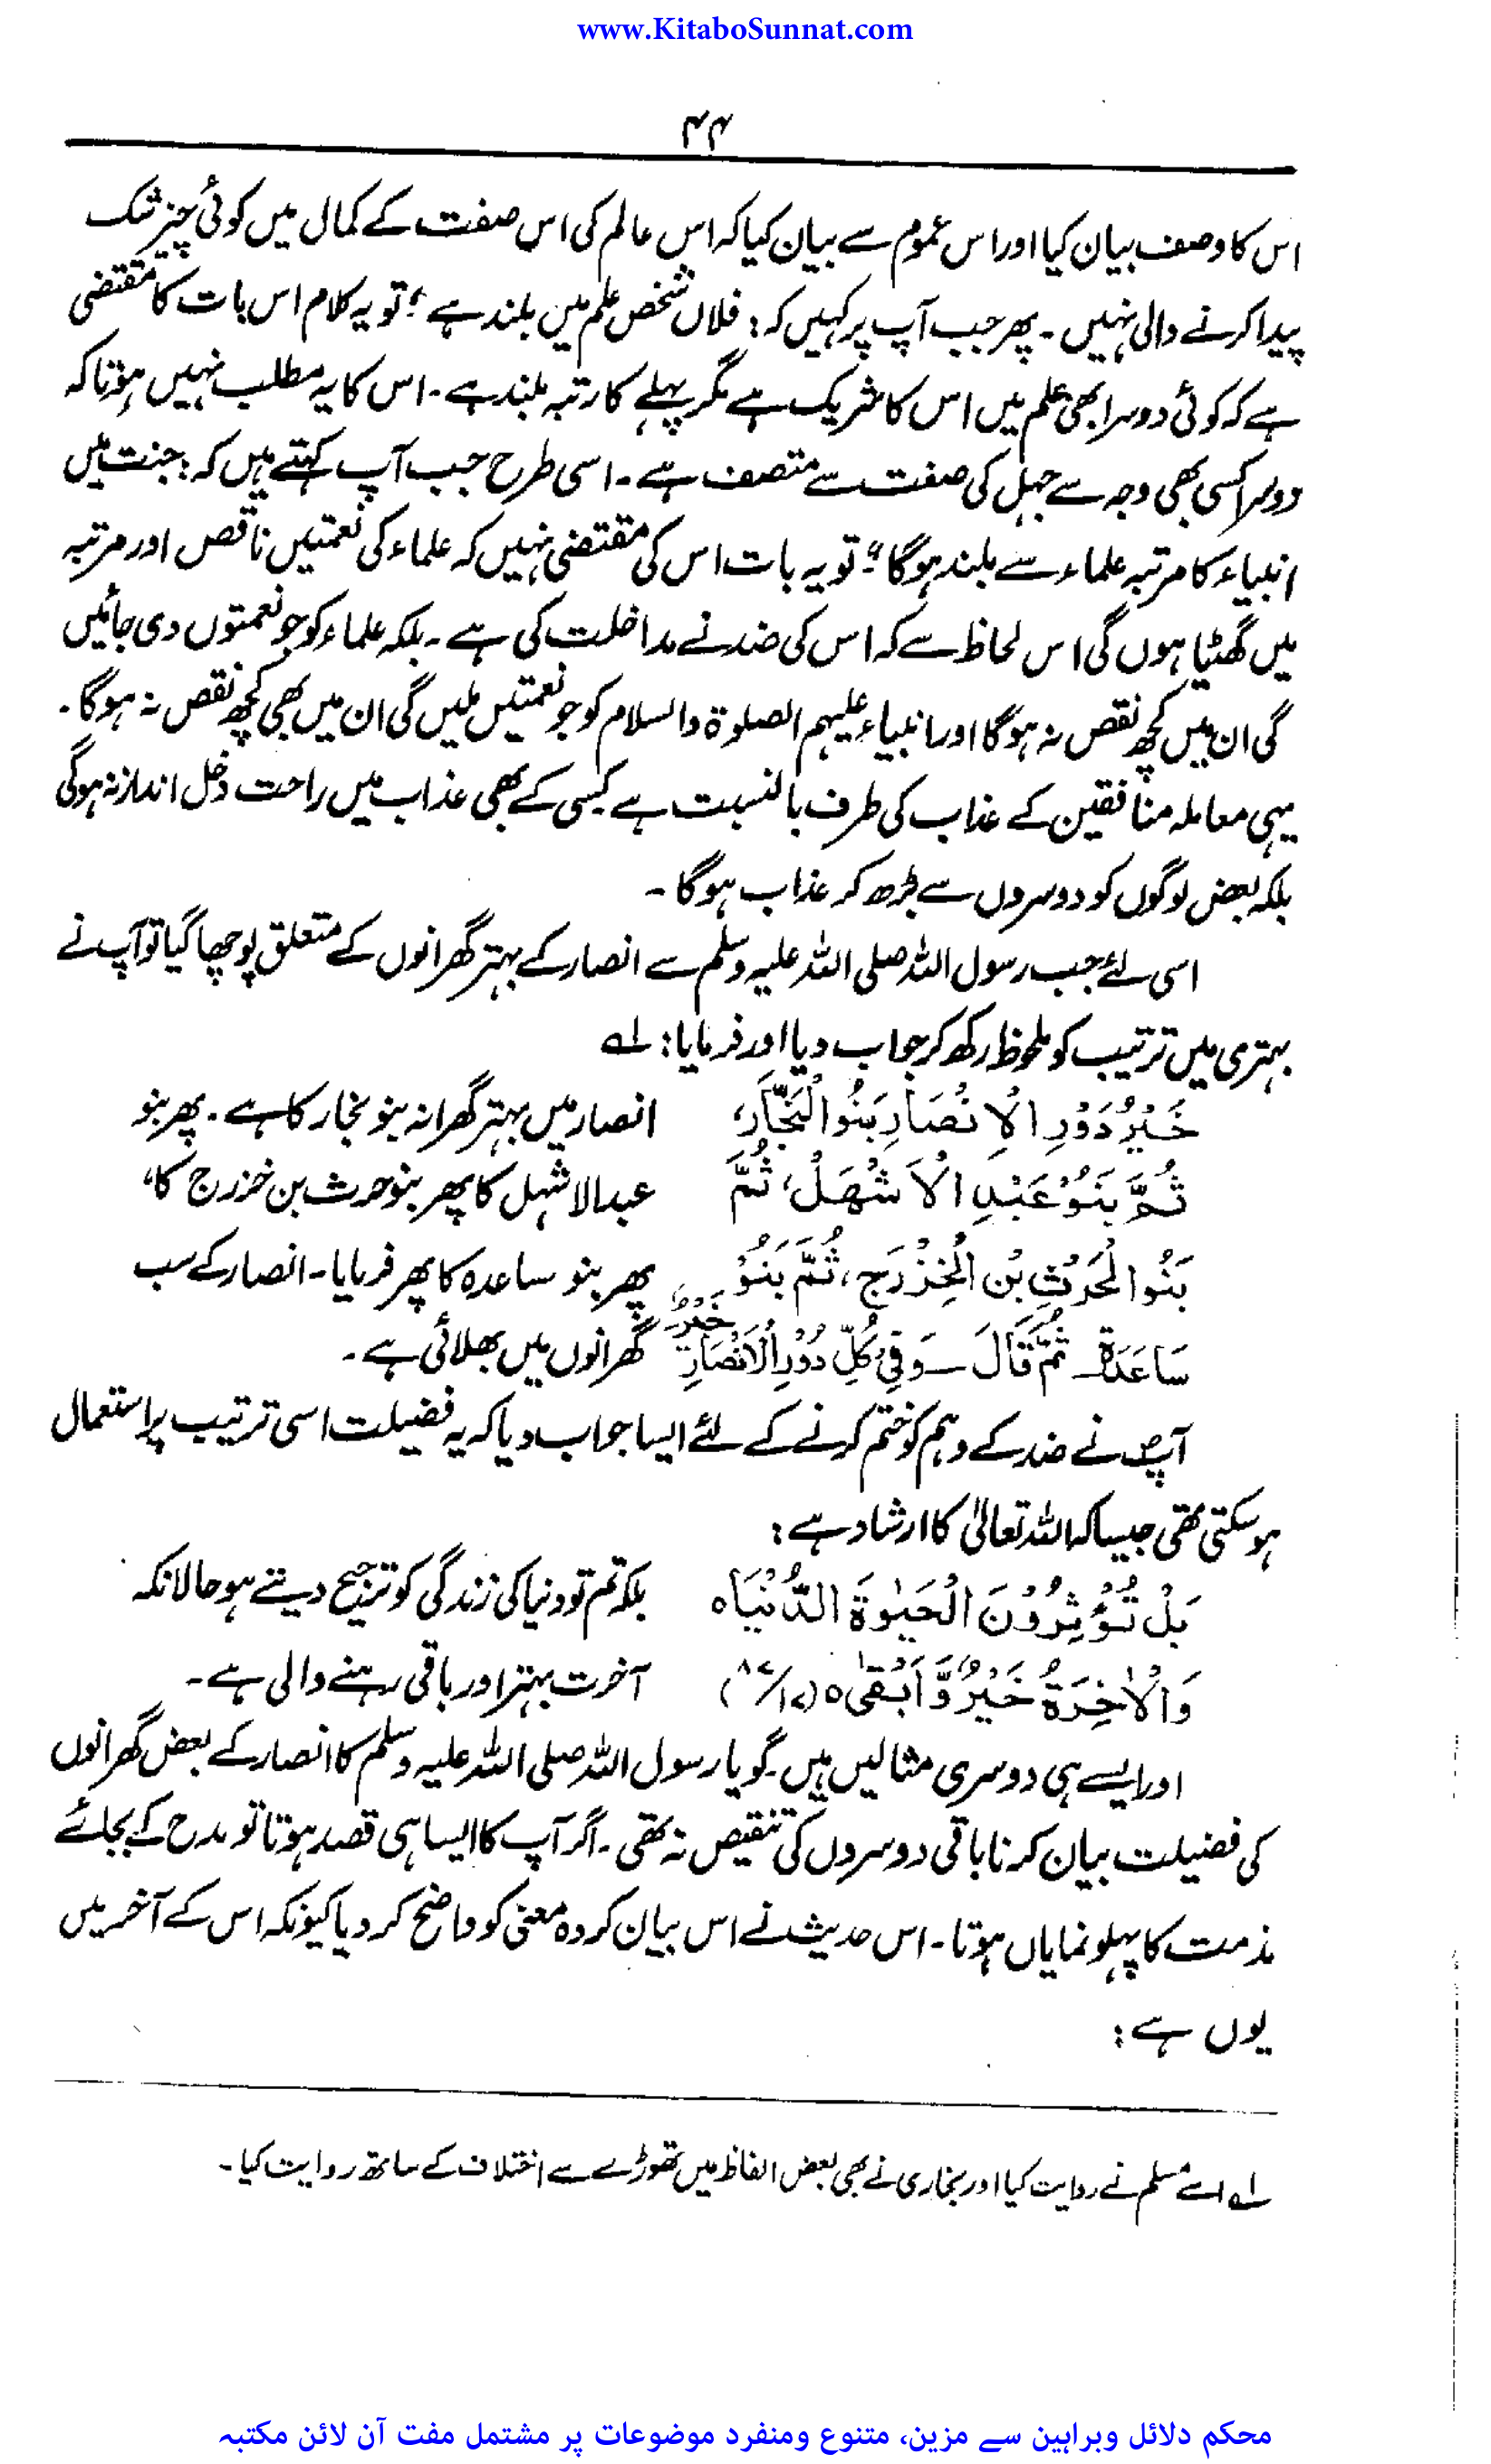 www.KitaboSunnat.com
۴۴
اس کا وصف بیان کیا اور اس عموم سے بیان کیا کہ اس عالم کی اس صفت کے کمال میں کوئی چیز شک
پیدا کرنے والی نہیں ۔ پھر جب آپ پر کہیں کہ : فلاں شخص علم میں بلند ہے ؛ تو یہ کلام اس بات کا مقتضی
ہے کہ کوئی دوسرا بھی علم میں اس کا شریک ہے مگر پہلے کا رتبہ بلند ہے ۔ اس کا یہ مطلب نہیں ہوتا کہ
دوسرا کسی بھی وجہ سے جہل کی صفت سے متصف ہے ۔ اسی طرح جب آپ کہتے ہیں کہ : جنت میں
انبیاء کا مرتبہ علماء سے بلند ہوگا " تو یہ بات اس کی مقتضی نہیں کہ علماء کی نعمتیں ناقص اور مرتبہ
میں گھٹیا ہوں گی اس لحاظ سے کہ اس کی ضد نے مداخلت کی ہے ۔ بلکہ علماء کو جو نعمتوں دی جائیں
گی ان میں کچھ نقص نہ ہوگا اور انبیاء علیہم الصلوۃ والسلام کو جو نعمتیں ملیں گی ان میں بھی کچھ نقص نہ ہوگا ۔
یہی معاملہ منافقین کے عذاب کی طرف بالنسبت ہے کسی کے بھی عذاب میں راحت دخل انداز نہ ہوگی
بلکہ بعض لوگوں کو دوسروں سے بڑھ کر عذاب ہوگا ۔
اسی لئے جب رسول اللہ صلی اللہ علیہ وسلم سے انصار کے بہتر گھرانوں کے متعلق پوچھا گیا تو آپ نے
بہتری میں ترتیب کو ملحوظ رکھ کر جواب دیا اور فرمایا : لہ
خَيْرُ دُوْرِ الْاَنْصَارِ بَنُوا النَّجَّارِ، انصار میں بہتر گھرانہ بنو نجار کا ہے ۔ پھر بنو
ثُمَّ بَنُوْ عَبْدِ الْاَشْهَلْ، ثُمَّ عبدالاشہل کا پھر بنو حرث بن خزرج کا،
بَنُوا الْحَرْثِ بْنِ الْخِزْرَجِ، ثُمَّ بَنُوْ پھر بنو ساعدہ کا پھر فرمایا ۔ انصار کے سب
سَاعَدَة ۔ ثُمَّ قَالَ ۔ وَفِیْ كُلِّ دُوْرِ الْاَنْصَارِ خَيْرٌ گھرانوں میں بھلائی ہے ۔
آپؐ نے ضد کے وہم کو ختم کرنے کے لئے ایسا جواب دیا کہ یہ فضیلت اسی ترتیب پر استعمال
ہو سکتی تھی جیسا کہ اللہ تعالیٰ کا ارشاد ہے :
بَلْ تُؤْثِرُوْنَ الْحَيٰوةَ الدُّنْيَا ہ بلکہ تم تو دنیا کی زندگی کو ترجیح دیتے ہو حالانکہ
وَالْاٰخِرَةُ خَيْرٌ وَّاَبْقٰى ہ (۸۷/۱۷) آخرت بہتر اور باقی رہنے والی ہے ۔
اور ایسے ہی دوسری مثالیں ہیں ۔ گویا رسول اللہ صلی اللہ علیہ وسلم کا انصار کے بعض گھرانوں
کی فضیلت بیان کرنا باقی دوسروں کی تنقیص نہ تھی ۔ اگر آپ کا ایسا ہی قصد ہوتا تو مدح کے بجائے
مذمت کا پہلو نمایاں ہوتا ۔ اس حدیث نے اس بیان کردہ معنی کو واضح کر دیا کیونکہ اس کے آخر میں
یوں ہے :
لہ اسے مسلم نے روایت کیا اور بخاری نے بھی بعض الفاظ میں تھوڑے سے اختلاف کے ساتھ روایت کیا ۔
محکم دلائل وبراہین سے مزین، متنوع ومنفرد موضوعات پر مشتمل مفت آن لائن مکتبہ